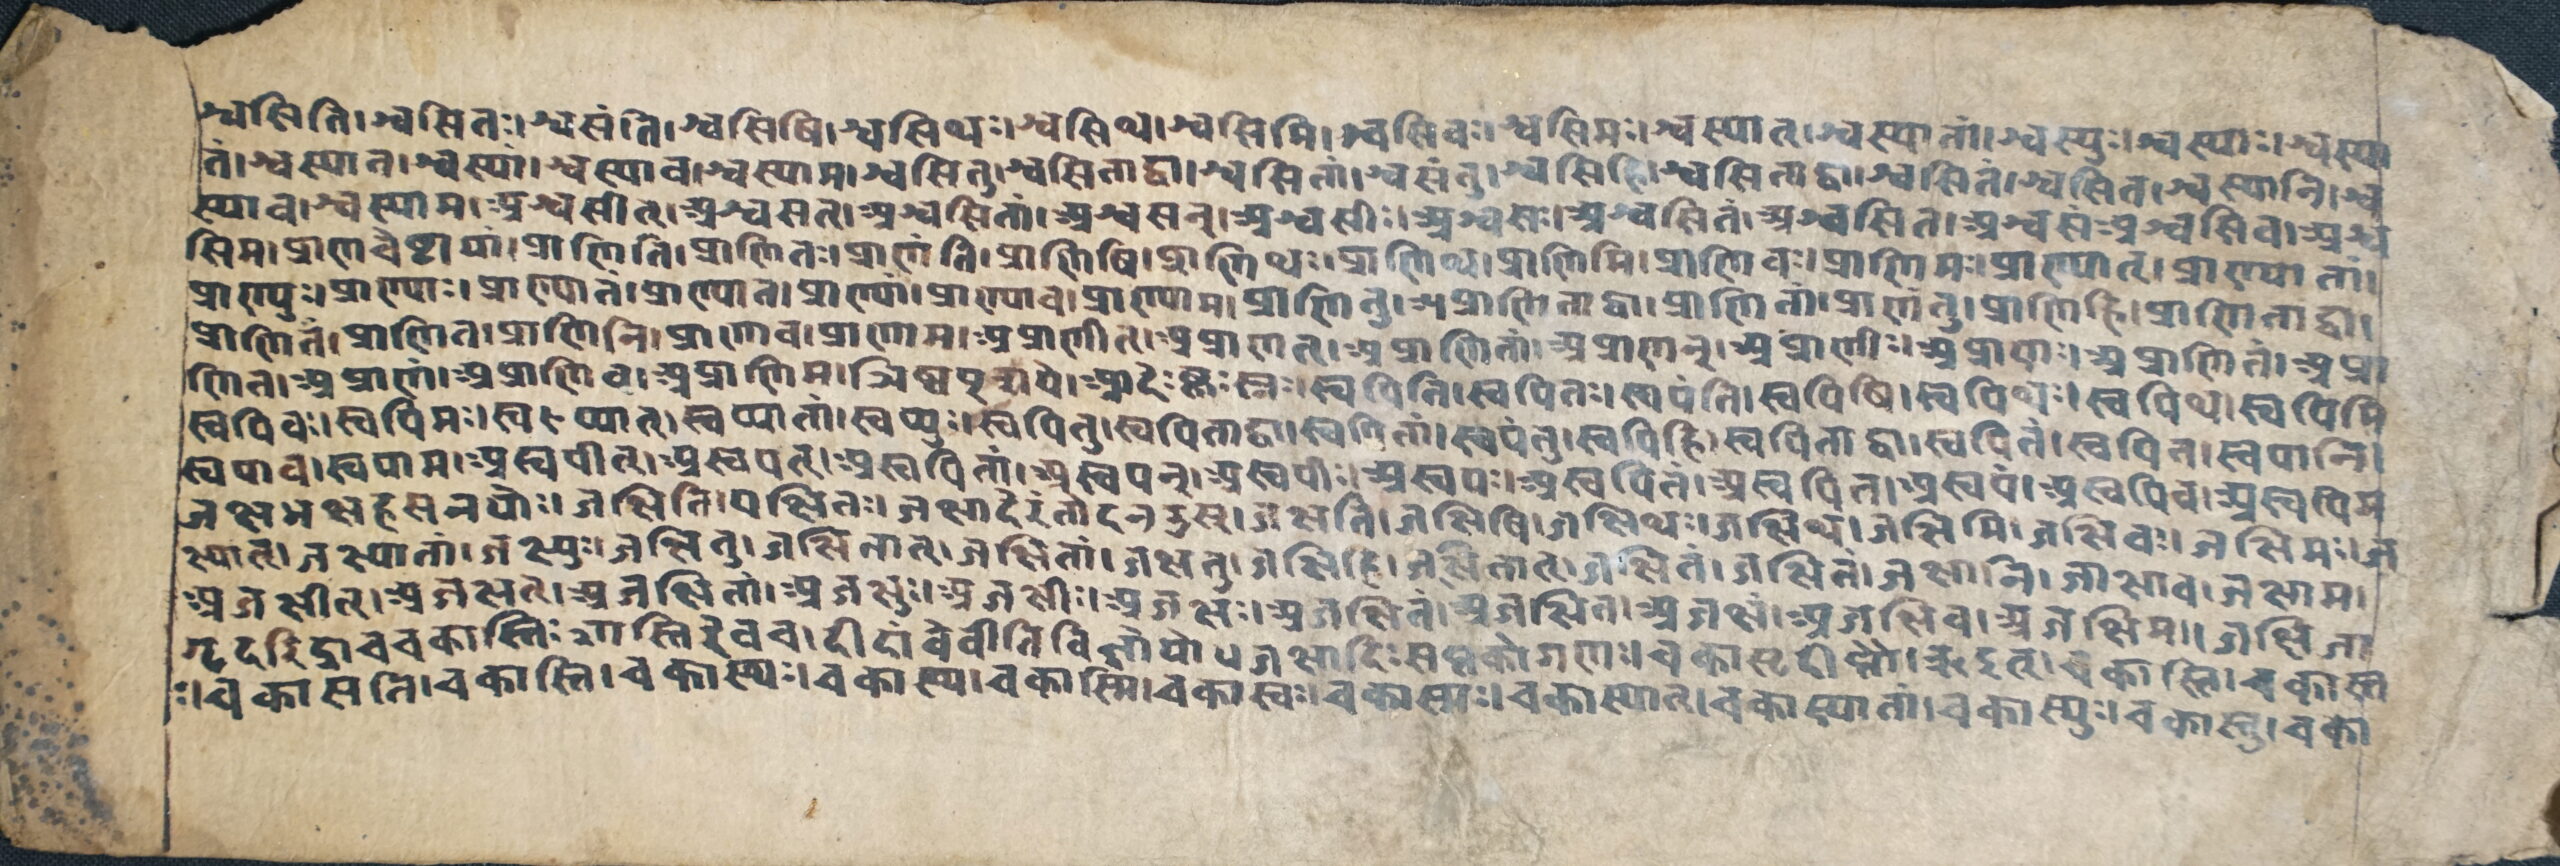 श्वसिति।श्वसितः।श्वसंति।श्वसिषि।श्वसिथः।श्वसिथ।श्वसिमि।श्वसिवः।श्वसिमः।श्वस्यात्।श्वस्यातां।श्वस्युः।श्वस्याः।श्वस्या
तं।श्वस्यात।श्वस्यां।श्वस्याव।श्वस्याम।श्वसितु।श्वसिताद्वा।श्वसितां।श्वसंतु।श्वसिहि।श्वसिताद्वा।श्वसितं।श्वसित।श्वस्यानि।श्व
स्याव।श्वस्याम।अश्वसीत्।अश्वसत्।अश्वसितां।अश्वसन्।अश्वसीः।अश्वसः।अश्वसितं।अश्वसित।अश्वसं।अश्वसिव।अश्व
सिम।प्राणचेष्टायां।प्राणिति।प्राणितः।प्राणंति।प्राणिषि।प्राणिथः।प्राणिथ।प्राणिमि।प्राणिवः।प्राणिमः।प्राण्यात्।प्राण्यातां।
प्राण्युः।प्राण्याः।प्राण्यातं।प्राण्यात।प्राण्यां।प्राण्याव।प्राण्याम।प्राणितु।प्राणिताद्वा।प्राणितां।प्राणंतु।प्राणिहि।प्राणिताद्वा।
प्राणितं।प्राणित।प्राणिनि।प्राणाव।प्राणाम।अप्राणीत्।अप्राणत्।अप्राणितां।अप्राणन्।अप्राणीः।अप्राणः।अप्राणितं।अप्रा
णित।अप्राणं।अप्राणिव।अप्राणिम।ञिष्वप्शये।स्वपिति।स्वपितः।स्वपंति।स्वपिषि।स्वपिथः।स्वपिथ।स्वपिमि
स्वपिवः।स्वपिमः।स्वप्यात्।स्वप्यातां।स्वप्युः।स्वपितु।स्वपिताद्वा।स्वपितां।स्वपंतु।स्वपिहि।स्वपिताद्वा।स्वपितं।स्वपित।स्वपानि।
स्वपाव।स्वपाम।अस्वपीत्।अस्वपत्।अस्वपितां।अस्वपन्।अस्वपीः।अस्वपः।अस्वपितं।अस्वपित।अस्वपं।अस्वपिव।अस्वपिम
जक्षभक्षहसनयोः।जक्षिति।पक्षितः।जक्षादेरंतोदनउस्।जक्षति।जक्षिषि।जक्षिथः।जक्षिथ।जक्षिमि।जक्षिवः।जक्षिमः।ज
क्ष्यात्।जक्ष्यातां।जक्ष्युः।जक्षितु।जक्षितात्।जक्षितां।जक्षतु।जक्षिहि।जक्षितात्।जक्षितं।जक्षितं।जक्षानि।जाक्षाव।जक्षाम।
अजक्षीत्।अजक्षत्।अजक्षितां।अजक्षुः।अजक्षीः।अजक्षः।अजक्षितं।अजक्षित।अजक्षं।अजक्षिव।अजक्षिम॥जक्षिजा
गृदरिद्राचचकास्तिःशास्तिरेवच।दीदांवेवीतिविज्ञेयोधजक्षादिःसप्तकोगणः।चकासृदीप्तौ।ऋइत्।चकास्ति।चकास्त
ः।चकासति।चकास्सि।चकास्थः।चकास्थ।चकास्मि।चकास्वः।चकास्मः।चकास्यात्।चकास्यातां।चकास्युः।चकास्तु।चका